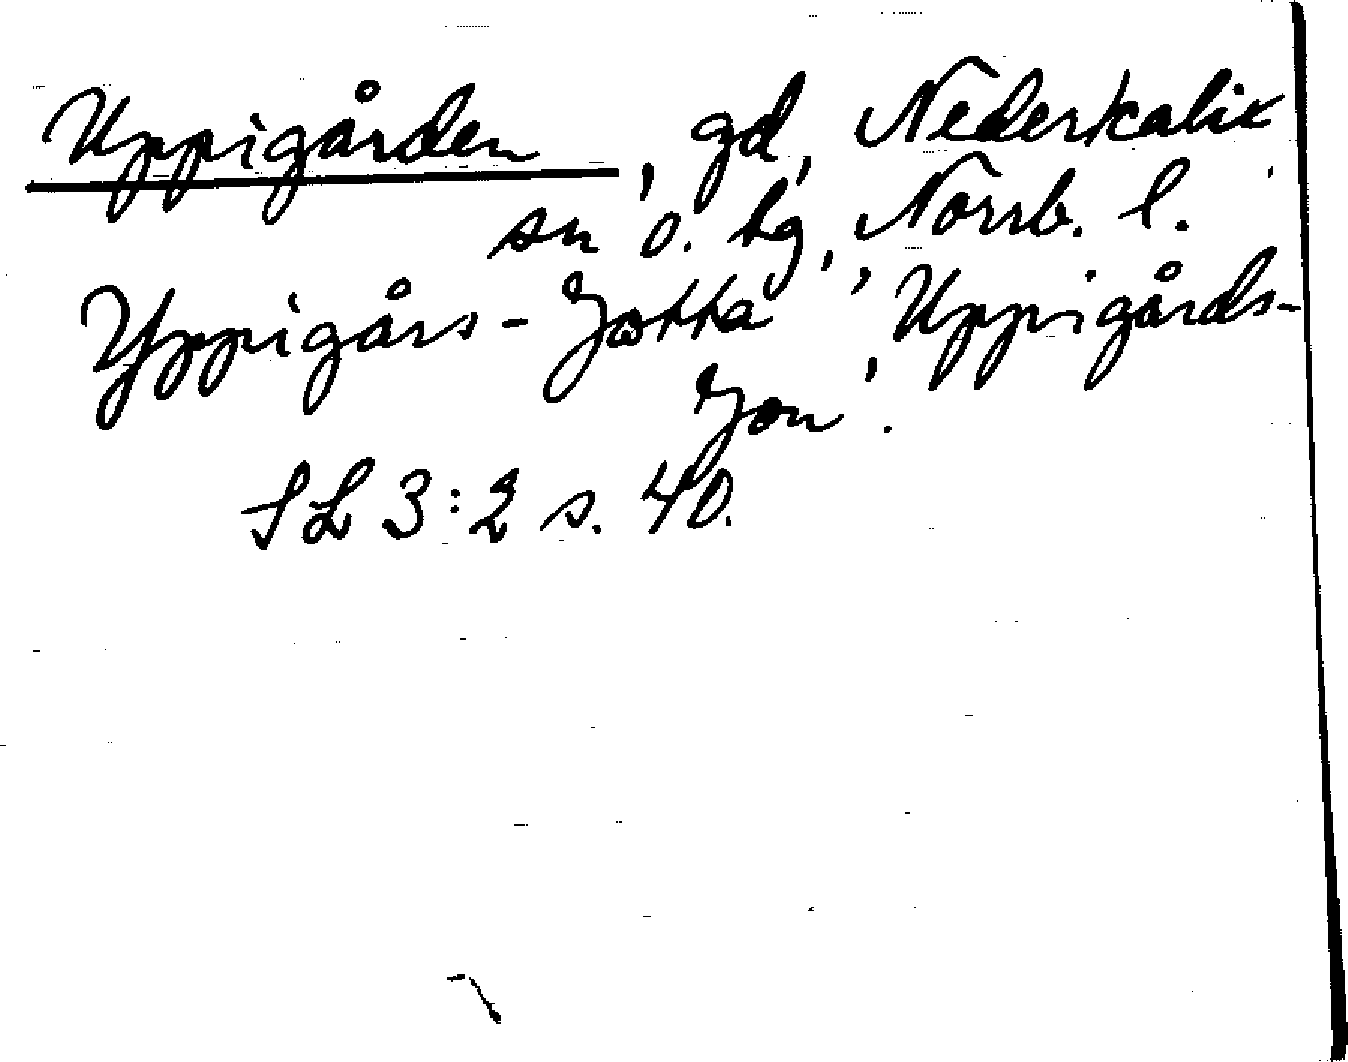 Uppigården, gd, Nederkalix
sn o. tg, Norrb. l.
Yppigårs-Jotta, 'Uppigårds-
Jon'.
SL 3:2 s. 40.